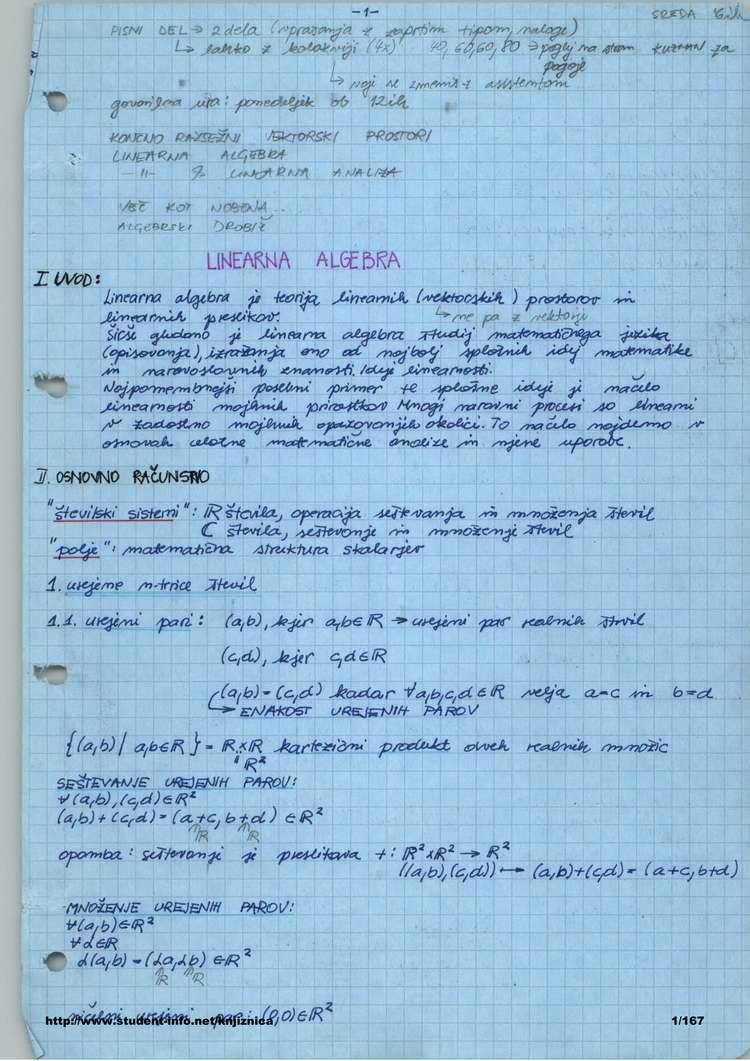 -1-
SREDA
PISNI DEL → 2 dela (vprašanja z zaprtim tipom, naloge)
↳ lahko z kolokviji (4x) 40, 60, 60, 80 → poglej na stran KUZMAN za
pogoje
↳ se zmeniš z asistentom
govorilna ura: ponedeljek ob 12ih
KONČNO RAZSEŽNI VEKTORSKI PROSTORI
LINEARNA ALGEBRA
-||- LINEARNA ANALIZA
VEČ KOT NOBENA..
ALGEBRSKI DROBIŽ
LINEARNA ALGEBRA
I UVOD:
Linearna algebra je teorija linearnih (vektorskih) prostorov in
linearnih preslikav. ↳ ne pa z vektorji
Širše gledano je linearna algebra študij matematičnega jezika
(opisovanja), izražanja eno od najbolj splošnih idej matematike
in naravoslovnih znanosti. Ideje linearnosti.
Najpomembnejši posebni primer te splošne ideje je načelo
linearnosti majhnih prirastkov. Mnogi naravni procesi so linearni
v zadostno majhnih opazovanjih okolici. To načelo najdemo v
osnovah celotne matematične analize in njene uporabe.
II. OSNOVNO RAČUNSTVO
"številski sistemi": ℝ števila, operacija seštevanja in množenja števil
ℂ števila, seštevanje in množenje števil
"polje": matematična struktura skalarjev
1. urejene n-terice števil
1.1. urejeni pari: (a,b), kjer a,b∈ℝ → urejeni par realnih števil
(c,d), kjer c,d∈ℝ
(a,b)=(c,d) kadar ∀a,b,c,d∈ℝ velja a=c in b=d
↳ ENAKOST UREJENIH PAROV
{(a,b)| a,b∈ℝ} = ℝ×ℝ kartezični produkt dveh realnih množic
" ℝ²
SEŠTEVANJE UREJENIH PAROV:
∀(a,b),(c,d)∈ℝ²
(a,b)+(c,d)=(a+c, b+d) ∈ℝ²
∈ℝ ∈ℝ
opomba: seštevanje je preslikava +: ℝ²×ℝ² → ℝ²
((a,b),(c,d)) ↦ (a,b)+(c,d)=(a+c,b+d)
MNOŽENJE UREJENIH PAROV:
∀(a,b)∈ℝ²
∀α∈ℝ
α(a,b)=(αa,αb) ∈ℝ²
∈ℝ ∈ℝ
ničelni urejeni par: (0,0)∈ℝ²
http://www.student-info.net/knjiznica 1/167